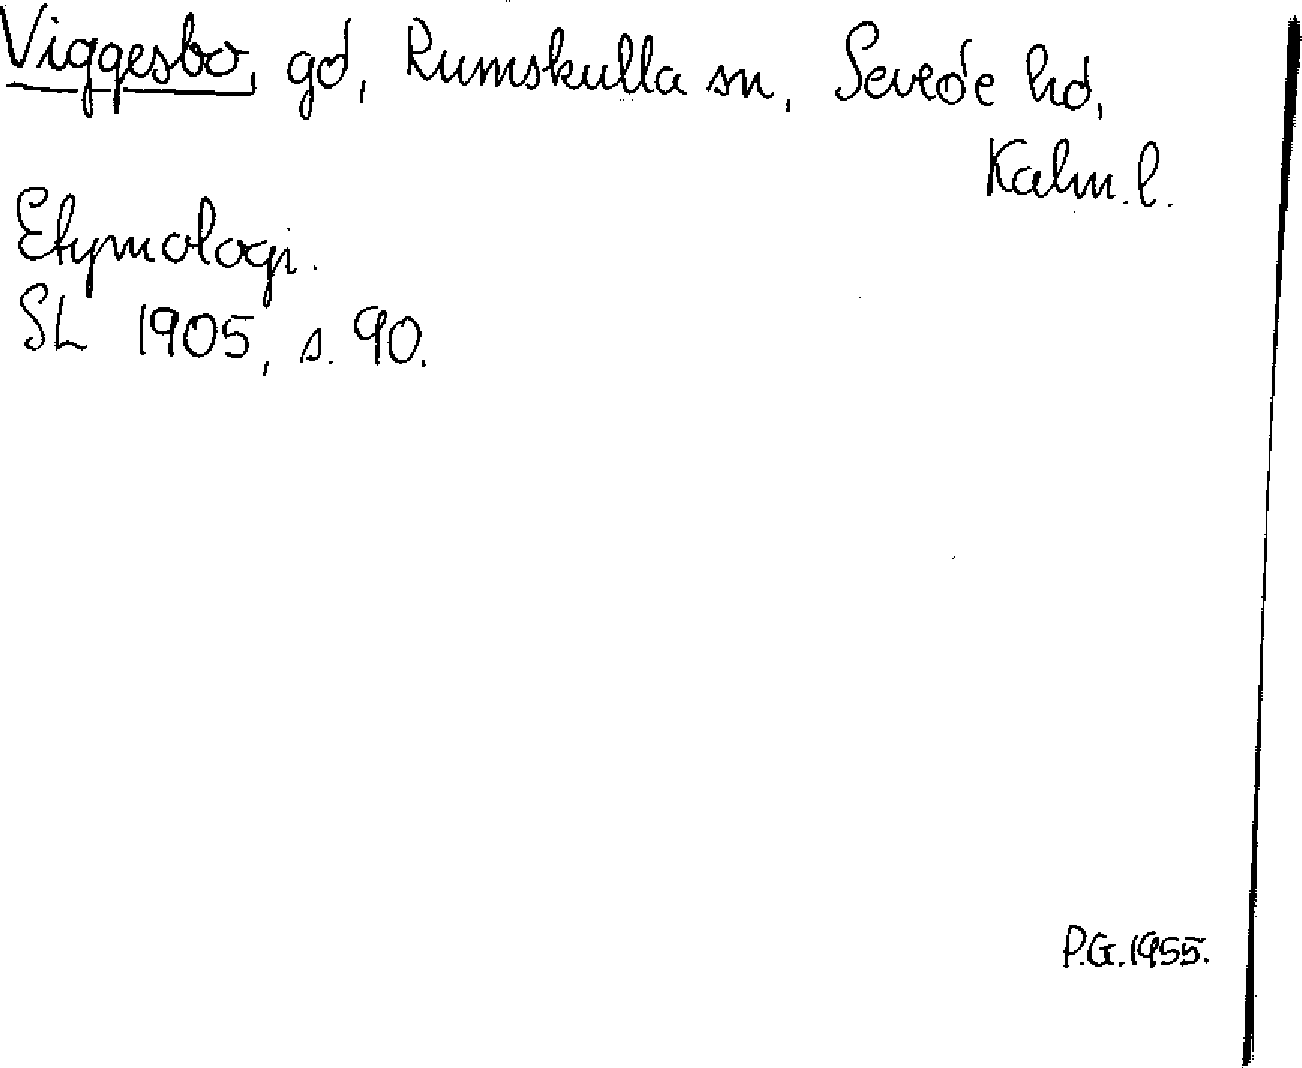 Viggesbo, gd, Rumskulla sn, Sevede hd,
Kalm.l.
Etymologi.
SL 1905, s. 90.
P.G.1955.